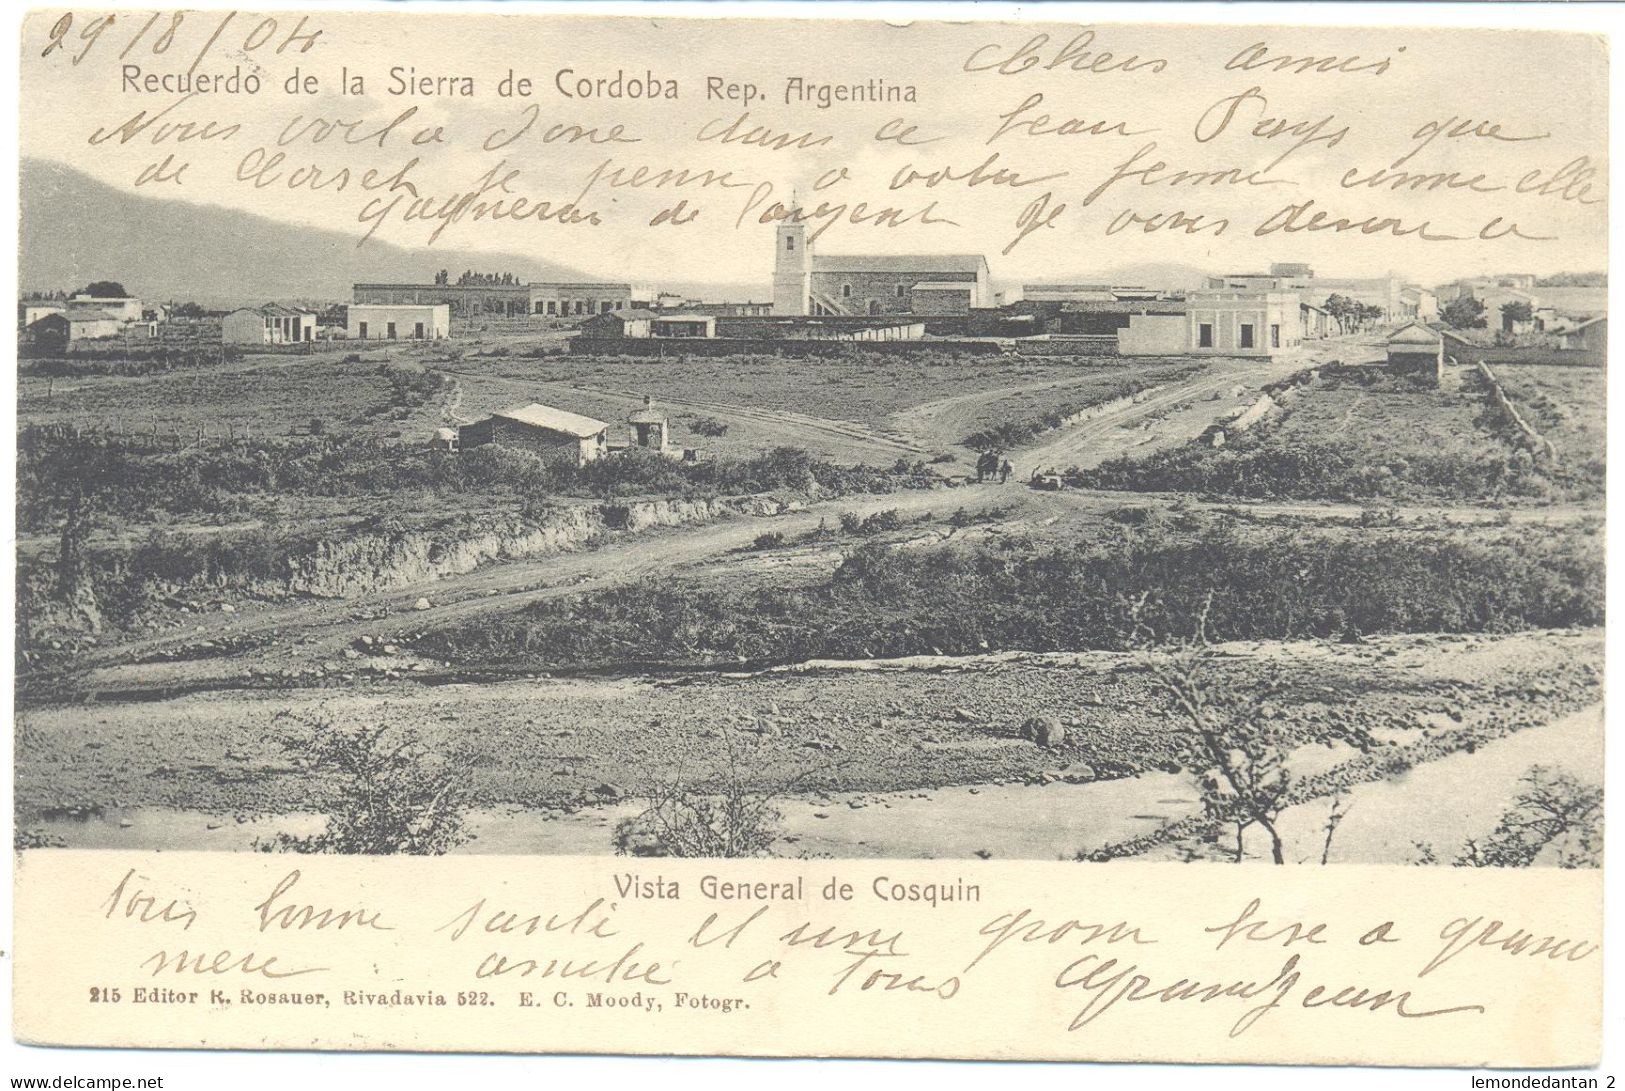 29/8/04
Chers amis
Recuerdo de la Sierra de Cordoba Rep. Argentina
Nous voila done dans ce beau Pays que
de Corset je pense a votre femme comme elle
gagnerai de l'argent Je vous desire a
Vista General de Cosquin
tous bonne santé et une grose bise a grand
mere amitié a tous Grand Jean
215 Editor R. Rosauer, Rivadavia 522. E. C. Moody, Fotogr.
lemondedantan 2